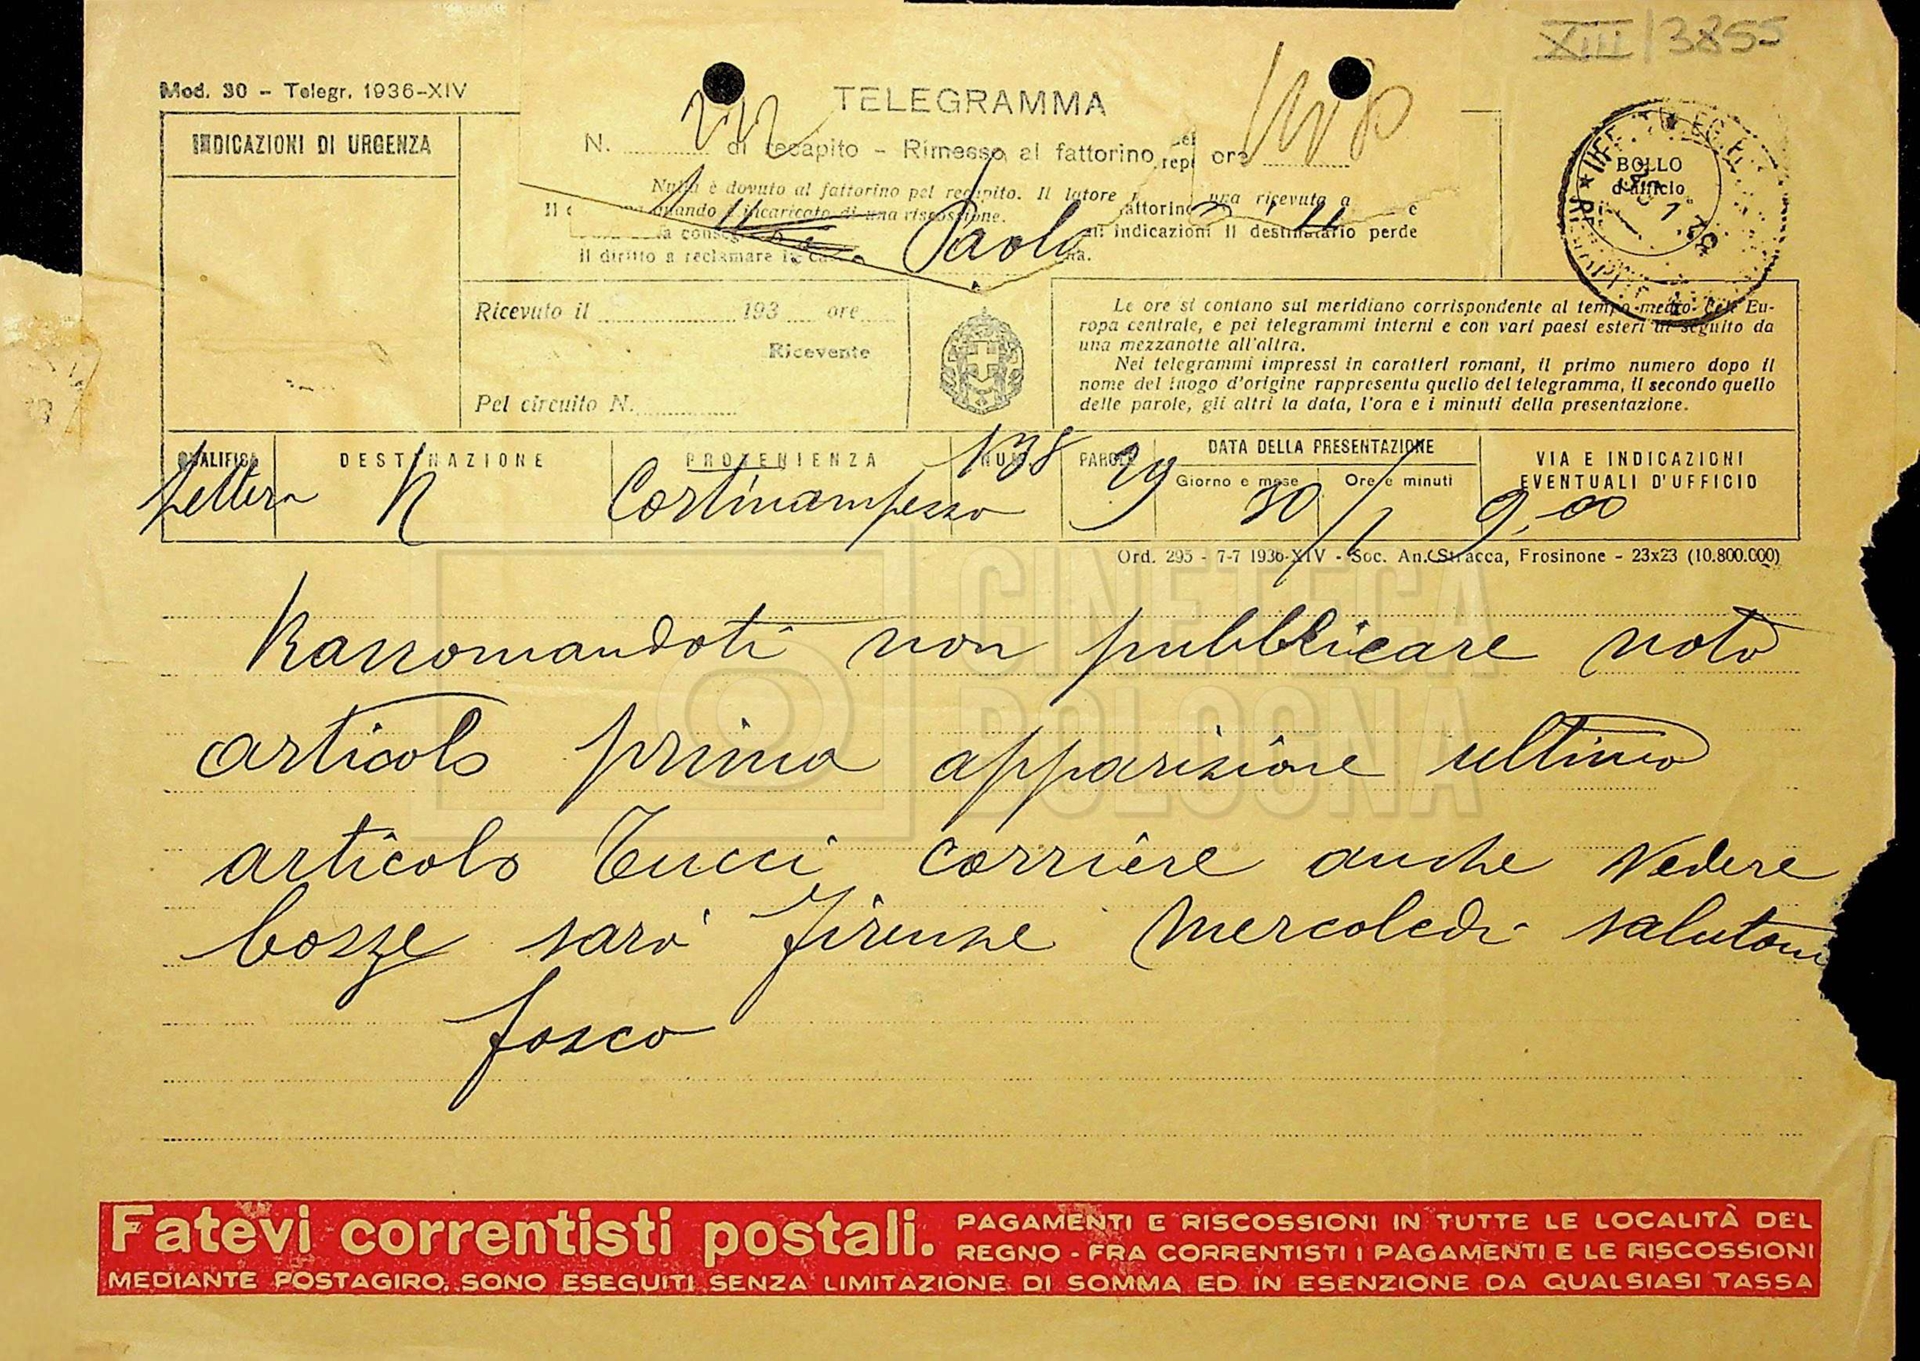 XIII/3855
Mod. 30 - Telegr. 1936-XIV
TELEGRAMMA
INDICAZIONI DI URGENZA
N. 212 di recapito - Rimesso al fattorino ore
Nulla è dovuto al fattorino pel recapito. Il latore una ricevuta a
quando è incaricato di una riscossione.
indicazioni il destinatario perde
il diritto a reclamare
Paola
BOLLO
d'ufficio
Ricevuto il 193 ore
Ricevente
Pel circuito N.
Le ore si contano sul meridiano corrispondente al tempo medio dell'Eu-
ropa centrale, e pei telegrammi interni e con vari paesi esteri di seguito da
una mezzanotte all'altra.
Nei telegrammi impressi in caratteri romani, il primo numero dopo il
nome del luogo d'origine rappresenta quello del telegramma, il secondo quello
delle parole, gli altri la data, l'ora e i minuti della presentazione.
QUALIFICA DESTINAZIONE PROVENIENZA NUM. PAROLE DATA DELLA PRESENTAZIONE VIA E INDICAZIONI
Giorno e mese Ore e minuti EVENTUALI D'UFFICIO
Lettera Cortinampezzo 138 29 30/1 9,00
Ord. 295 - 7-7 1936-XIV - Soc. An. Stracca, Frosinone - 23x23 (10.800.000)
CINETECA
BOLOGNA
Raccomandoti non pubblicare noto
articolo prima apparizione ultimo
articolo Tucci corriere anche vedere
bozze sarò Firenze Mercoledì salutoni
fosco
Fatevi correntisti postali. PAGAMENTI E RISCOSSIONI IN TUTTE LE LOCALITÀ DEL
REGNO - FRA CORRENTISTI I PAGAMENTI E LE RISCOSSIONI
MEDIANTE POSTAGIRO, SONO ESEGUITI SENZA LIMITAZIONE DI SOMMA ED IN ESENZIONE DA QUALSIASI TASSA